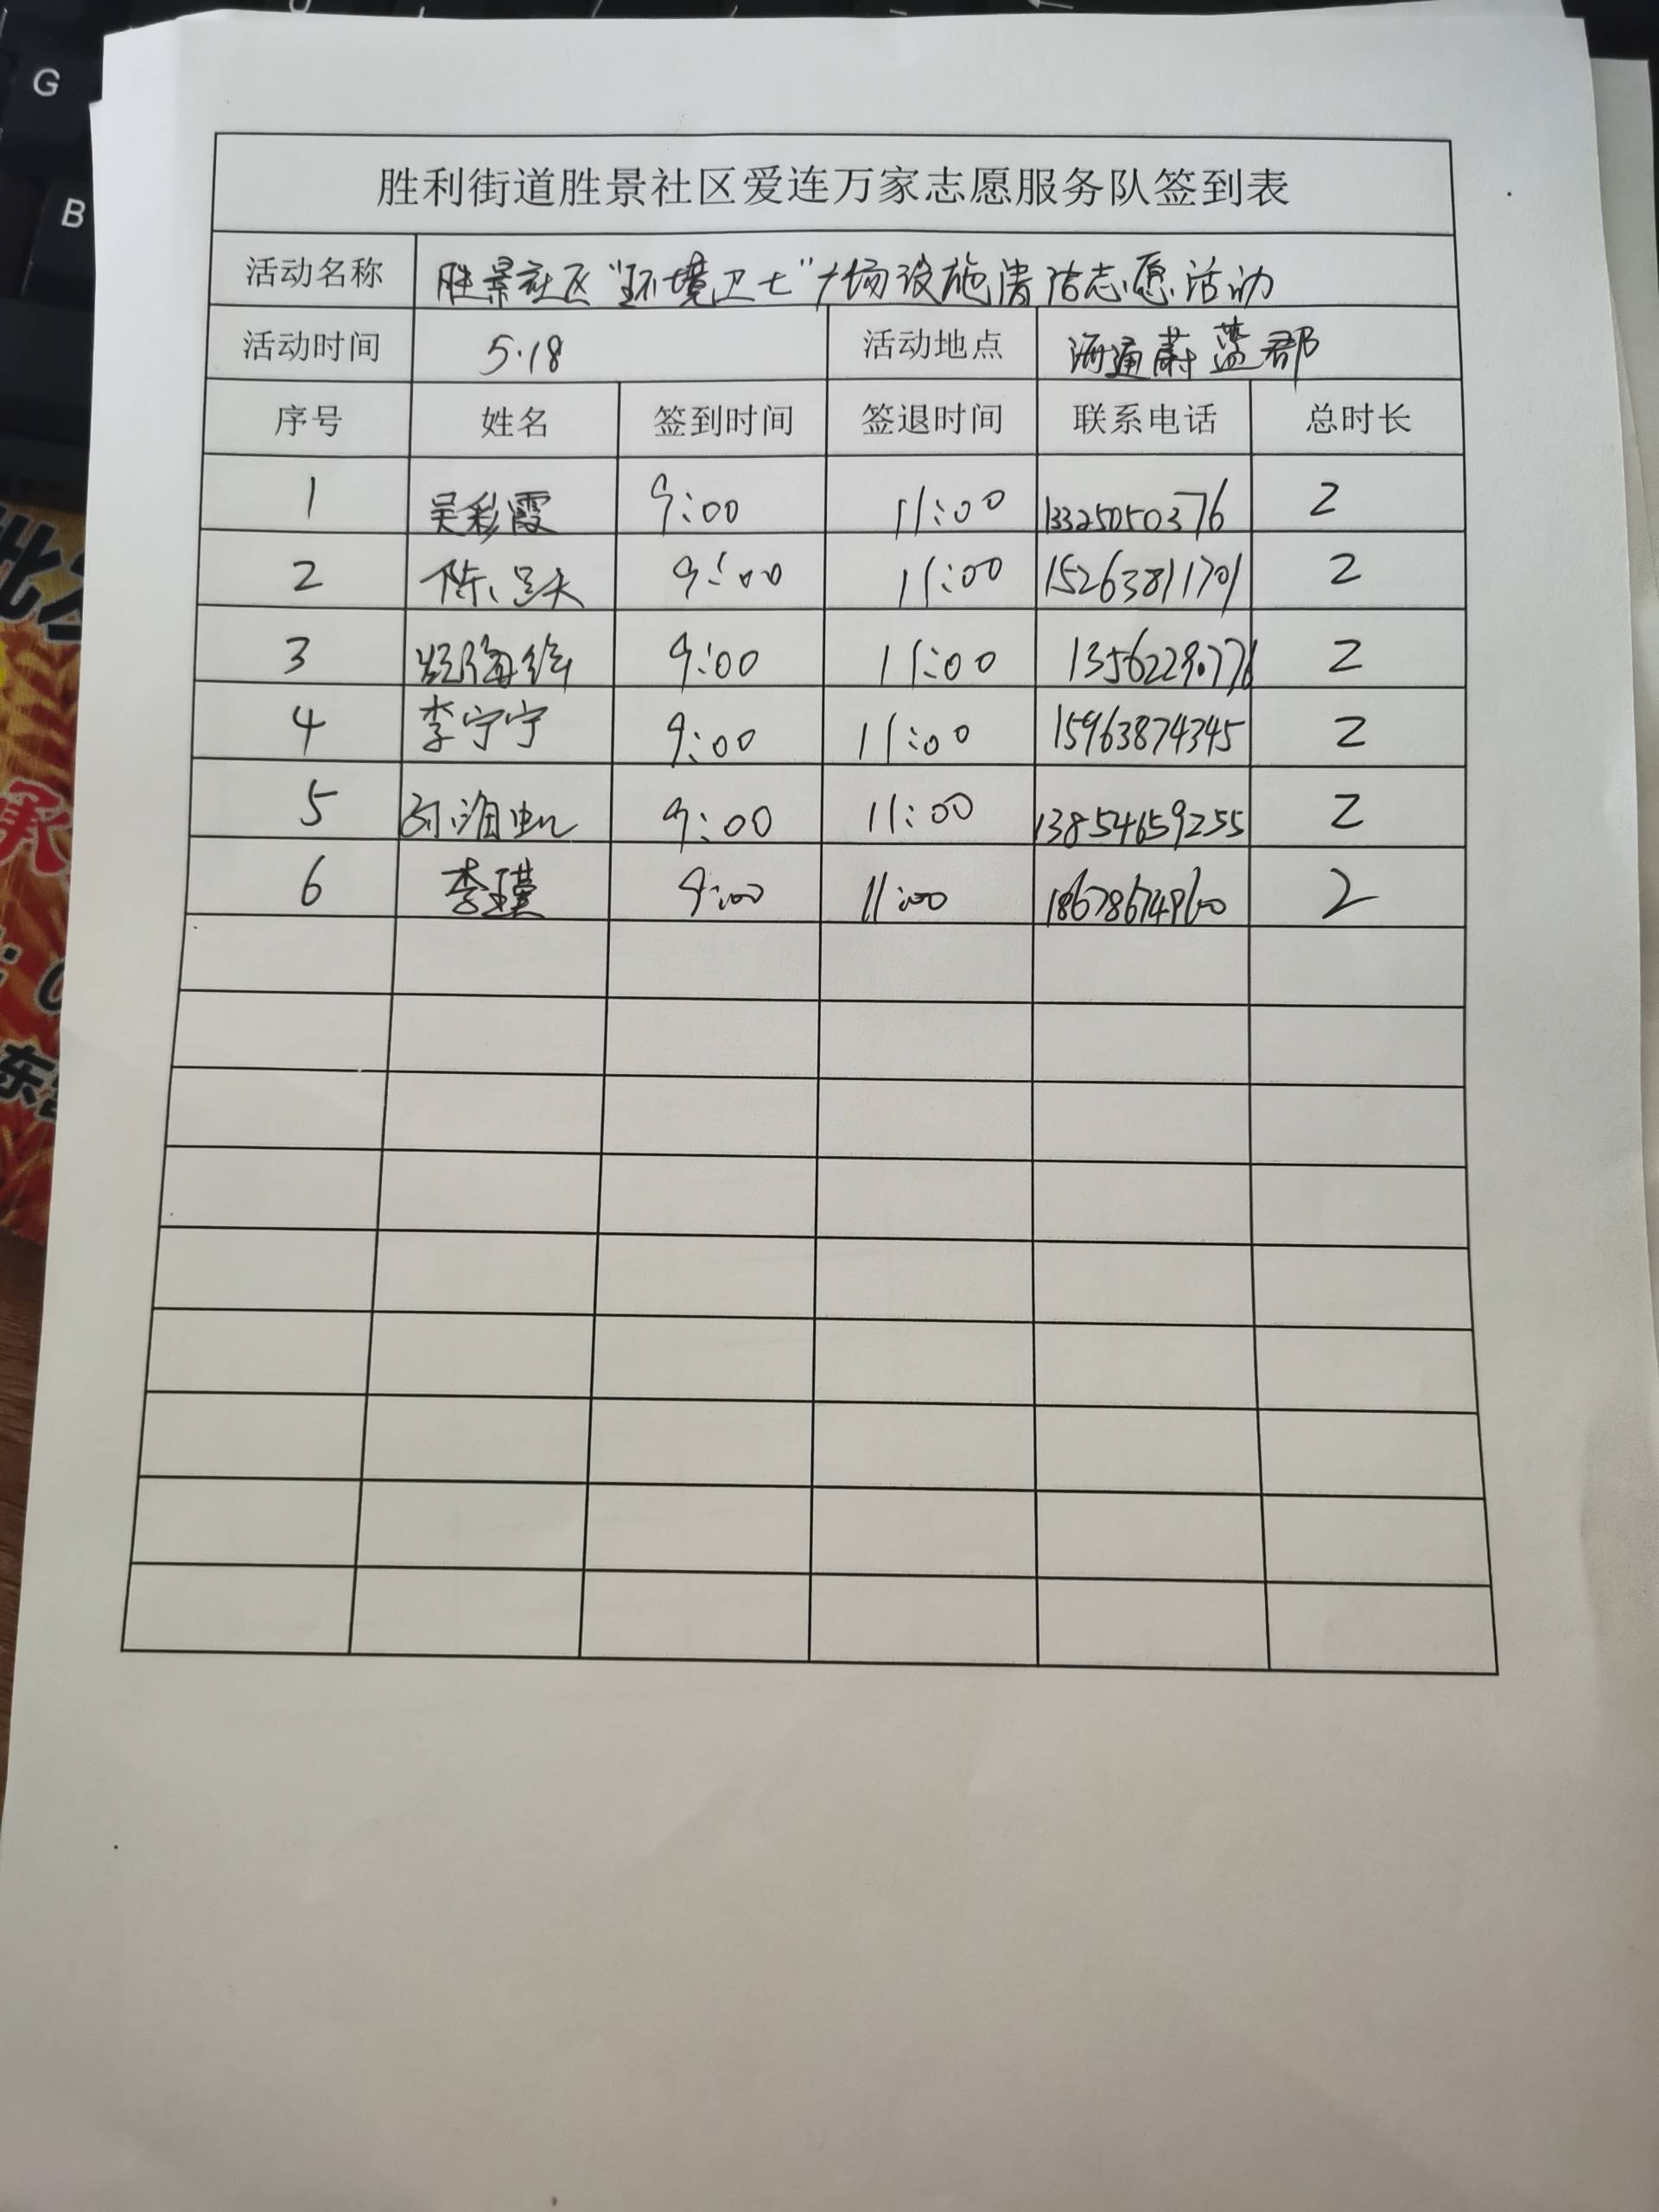 G
B
胜利街道胜景社区爱连万家志愿服务队签到表
活动名称 胜景社区"环境卫士"广场设施清洁志愿活动
活动时间 5.18 活动地点 海通蔚蓝郡
序号 姓名 签到时间 签退时间 联系电话 总时长
1 吴彩霞 9:00 11:00 13325050376 2
2 陈 9:00 11:00 15263811701 2
3 9:00 11:00 2
4 李宁宁 9:00 11:00 15963874345 2
5 刘海虹 9:00 11:00 13854659255 2
6 李瑾 9:00 11:00 18678674960 2
批发
承
东营